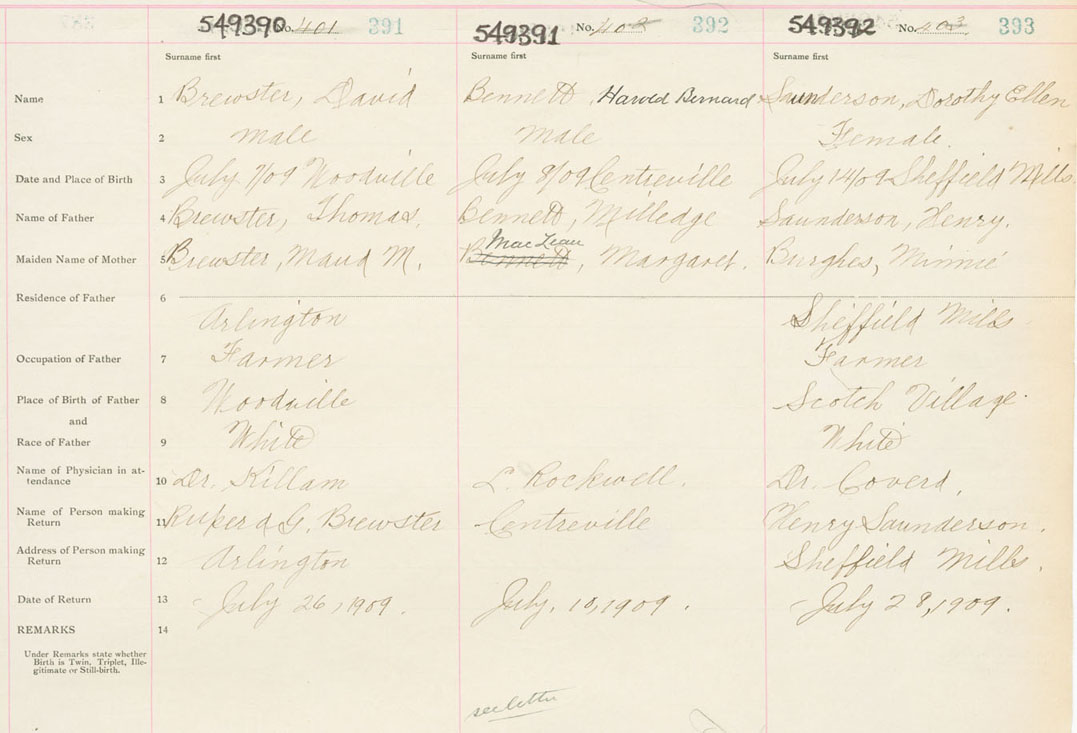 549390 No. 401 391 549391 No. 402 392 549392 No. 403 393
Surname first Surname first Surname first
Name 1 Brewster, David Bennett, Harold Bernard Saunderson, Dorothy Ellen
Sex 2 male Male Female.
Date and Place of Birth 3 July 7/09 Woodville July 8/09 Centreville July 14/09 Sheffield Mills.
Name of Father 4 Brewster, Thomas. Bennett, Milledge Saunderson, Henry.
MacLean
Maiden Name of Mother 5 Brewster, Maud M. Bennett, Margaret. Burghes, Minnie
Residence of Father 6
Arlington Sheffield Mills
Occupation of Father 7 Farmer Farmer
Place of Birth of Father 8 Woodville Scotch Village.
and
Race of Father 9 White White
Name of Physician in at-
tendance 10 Dr. Killam L. Rockwell. Dr. Coverd,
Name of Person making
Return 11 G. Brewster Centreville Henry Saunderson.
Address of Person making
Return 12 Arlington Sheffield Mills.
Date of Return 13 July 26, 1909. July. 10, 1909. July 28, 1909.
REMARKS 14
Under Remarks state whether
Birth is Twin, Triplet, Ille-
gitimate or Still-birth.
see letter